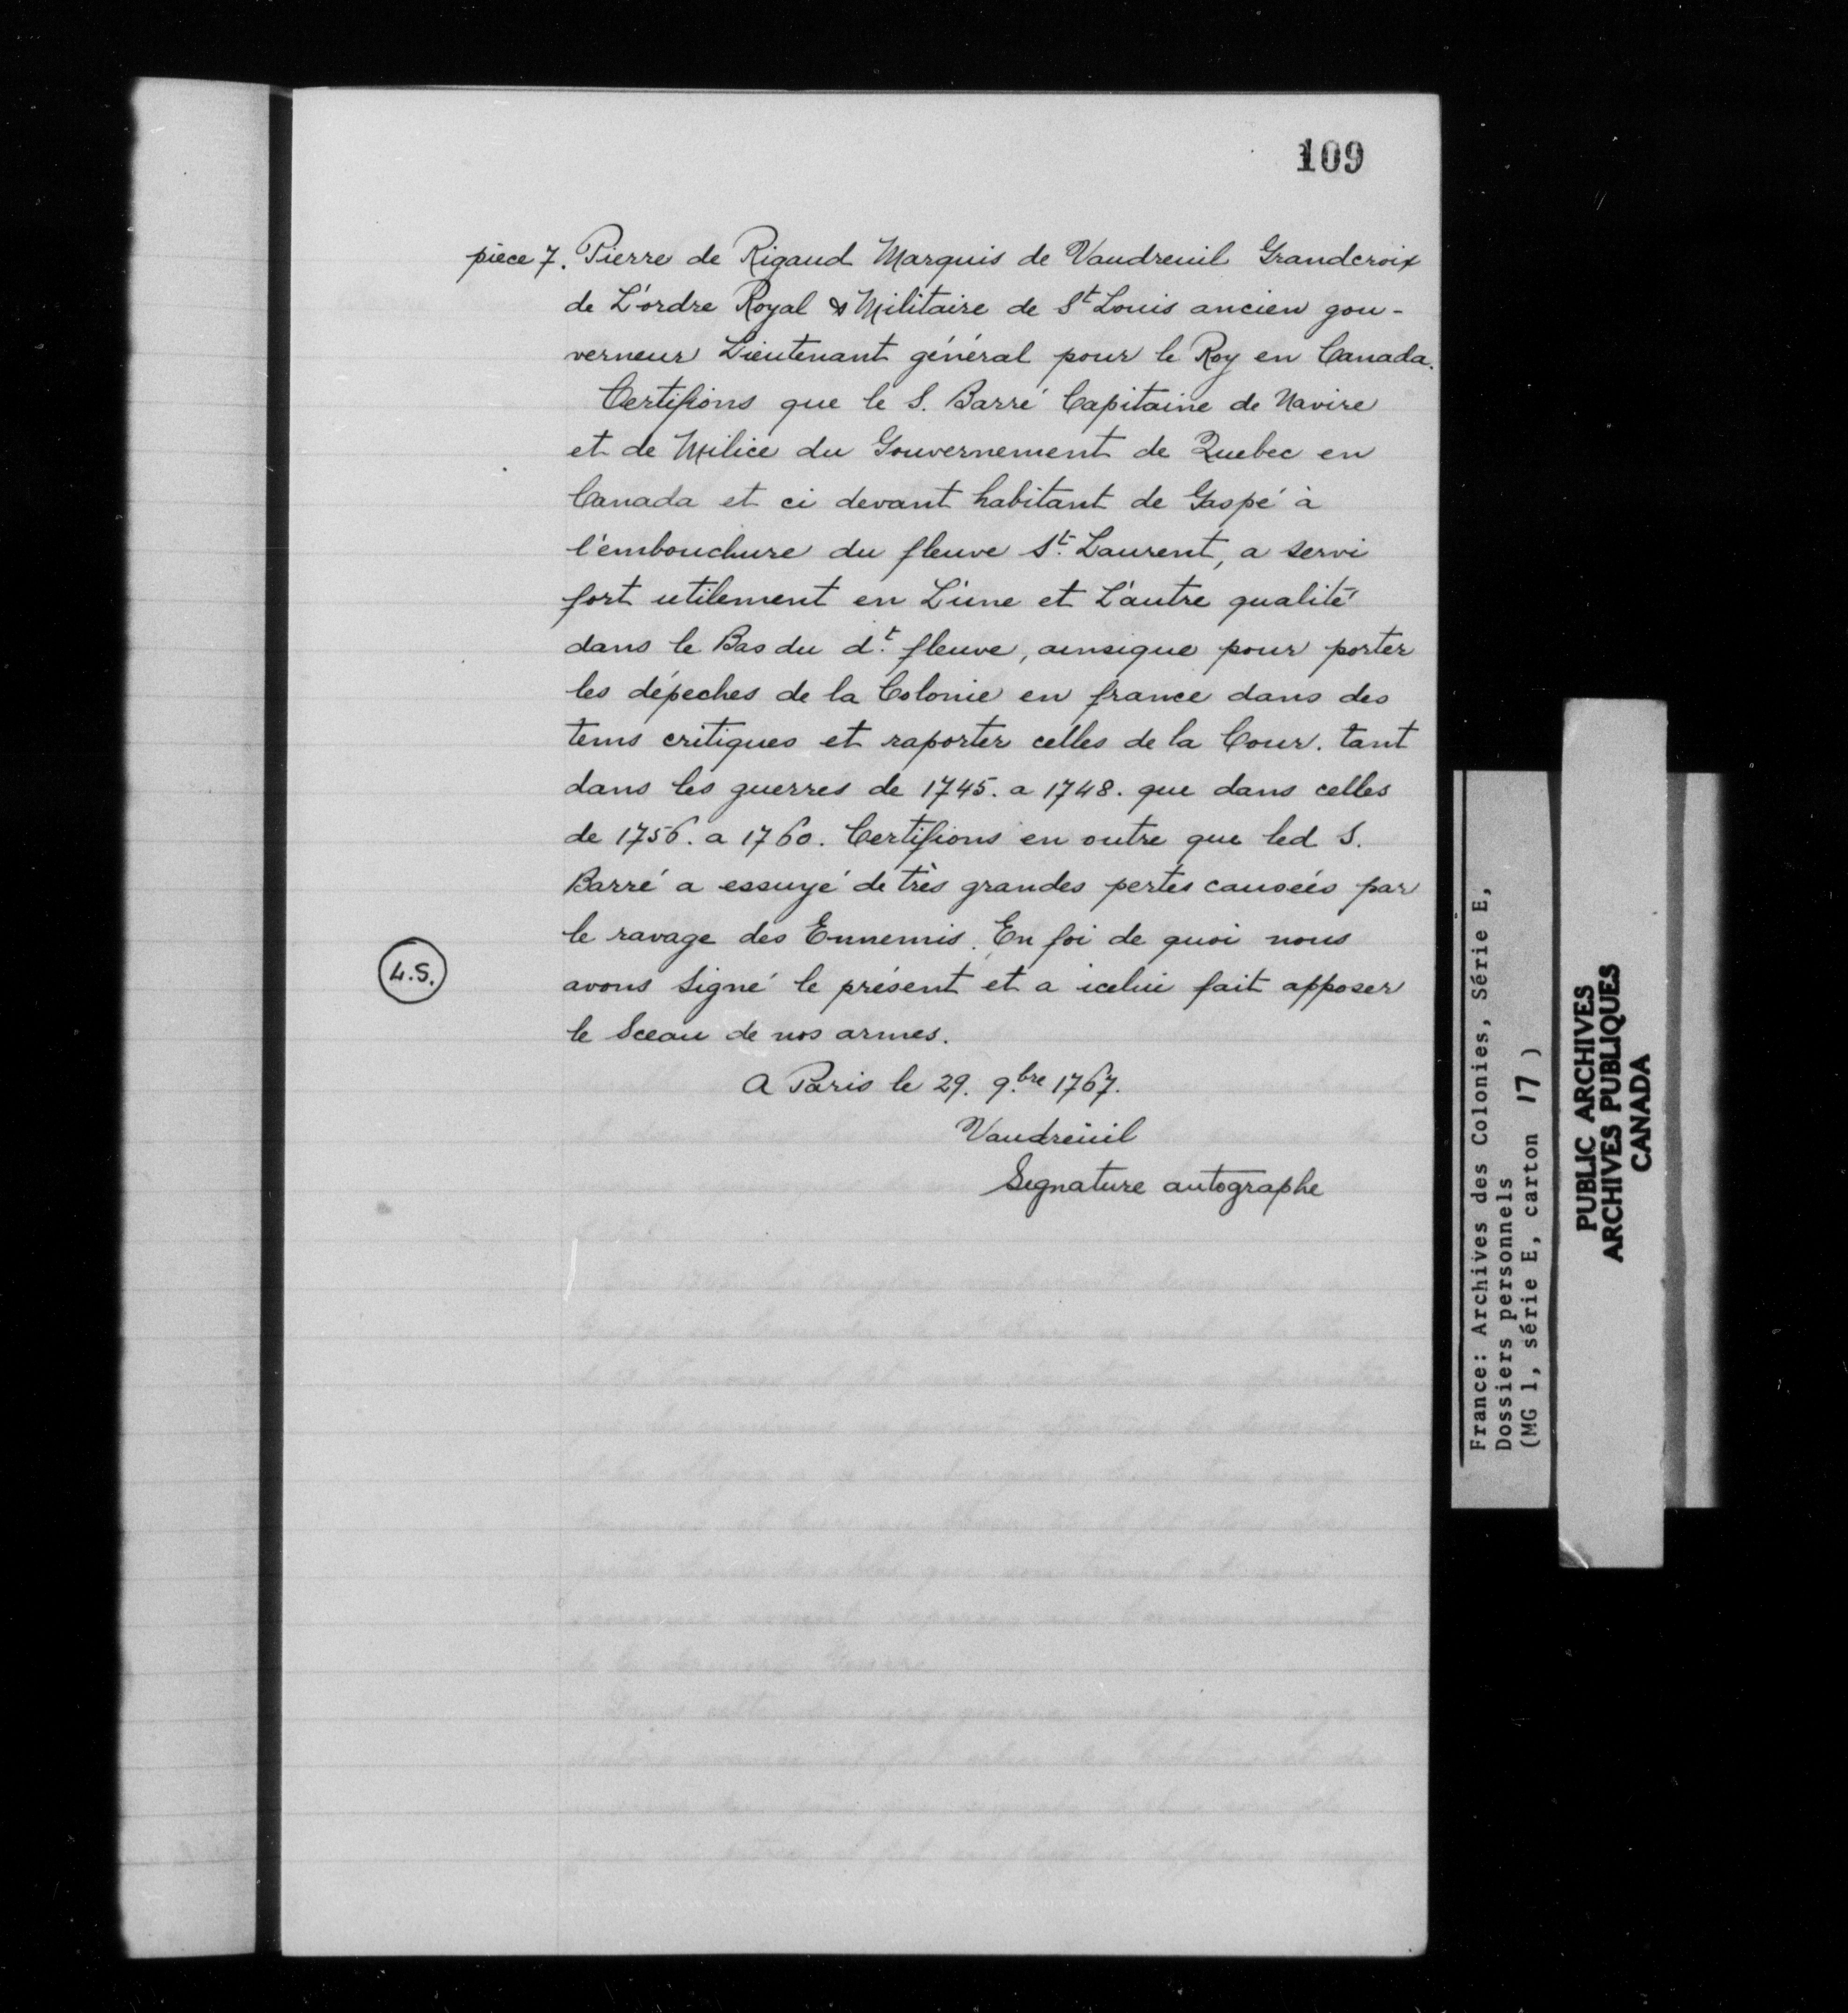 109
pièce 7. Pierre de Rigaud Marquis de Vaudreuil Grandcroix
de L'ordre Royal & Militaire de St Louis ancien gou-
verneur Lieutenant général pour le Roy en Canada.
Certifions que le S. Barré Capitaine de Navire
et de Milice du Gouvernement de Quebec en
Canada et ci devant habitant de Gaspé à
l'embouchure du fleuve St. Laurent, a servi
fort utilement en L'une et L'autre qualité
dans le Bas du dt. fleuve, ainsique pour porter
les dépeches de la Colonie en france dans des
tems critiques et raporter celles de la Cour. tant
dans les guerres de 1745. a 1748. que dans celles
de 1756. a 1760. Certifions en outre que led S.
Barré a essuyé de très grandes pertes causées par
le ravage des Ennemis. En foi de quoi nous
L.S.
avons Signé le présent et a icelui fait apposer
le Sceau de nos armes.
A Paris le 29. 9.bre 1767.
Vaudreüil
Signature autographe
France: Archives des Colonies, Série E,
Dossiers personnels
(MG 1, série E, carton 17 )
PUBLIC ARCHIVES
ARCHIVES PUBLIQUES
CANADA